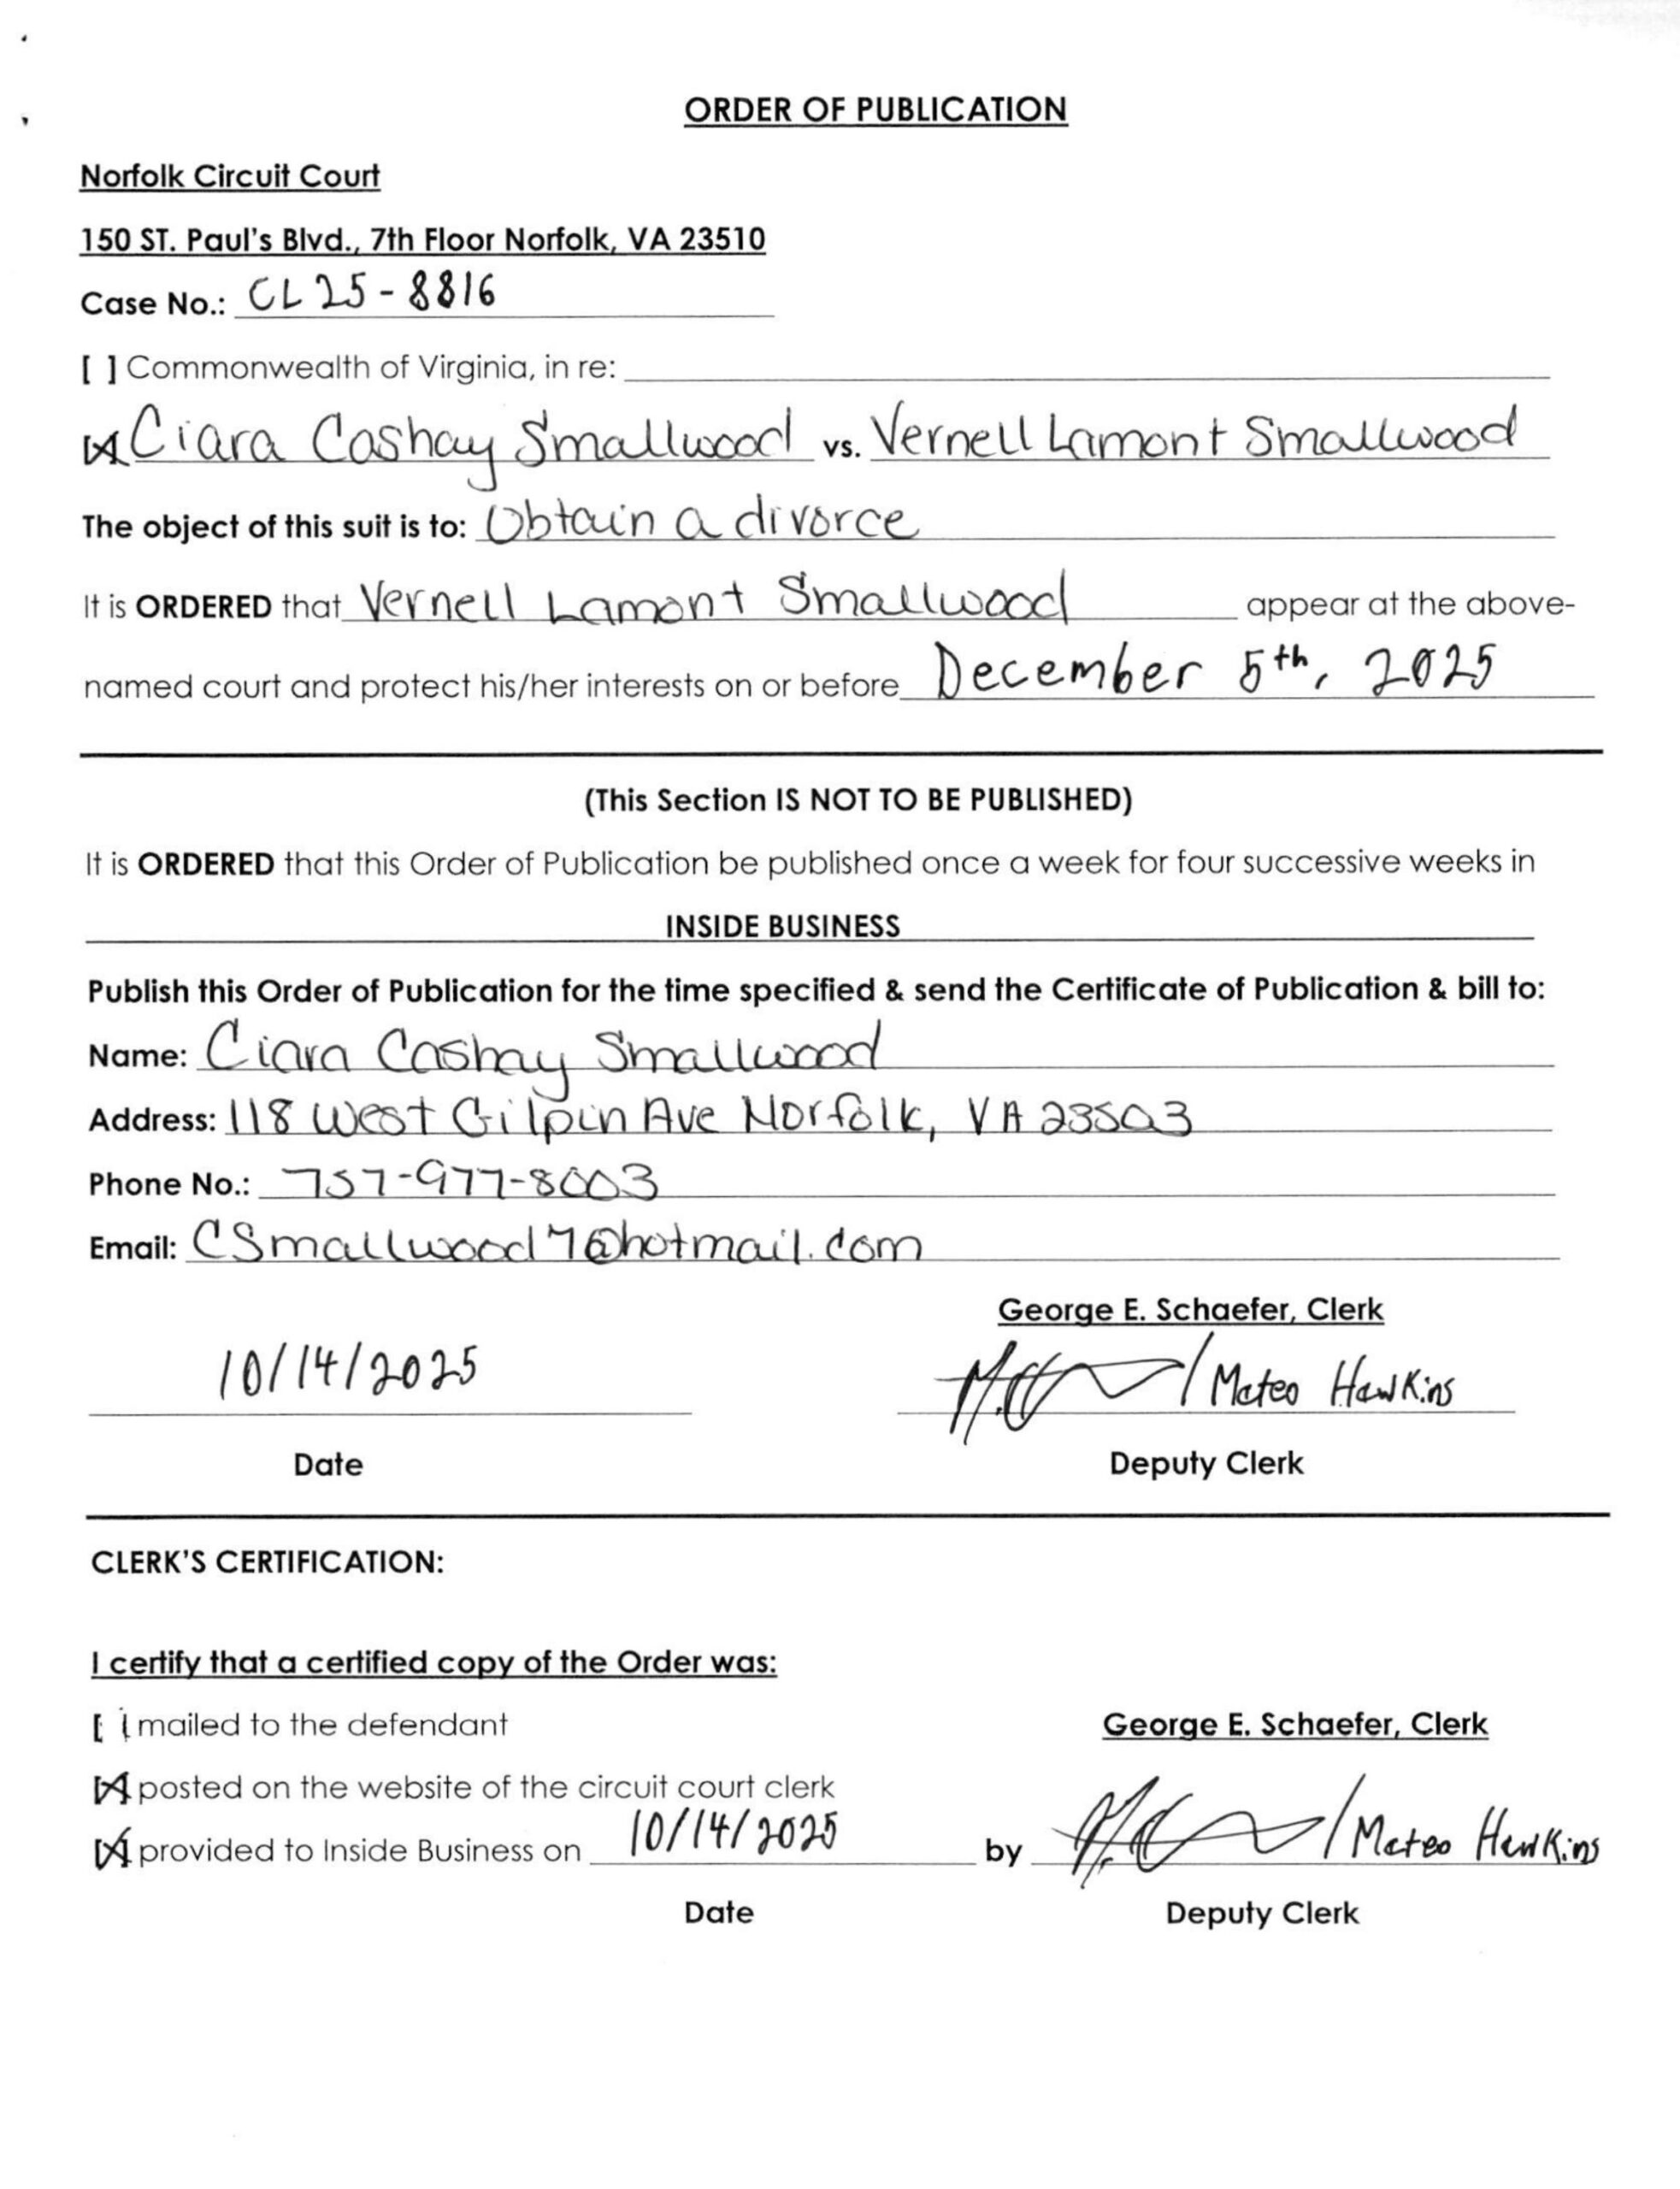 ORDER OF PUBLICATION
Norfolk Circuit Court
150 ST. Paul's Blvd., 7th Floor Norfolk, VA 23510
Case No.: CL25-8816
[ ] Commonwealth of Virginia, in re:
[X] Ciara Cashay Smallwood vs. Vernell Lamont Smallwood
The object of this suit is to: Obtain a divorce
It is ORDERED that Vernell Lamont Smallwood appear at the above-
named court and protect his/her interests on or before December 5th, 2025
(This Section IS NOT TO BE PUBLISHED)
It is ORDERED that this Order of Publication be published once a week for four successive weeks in
INSIDE BUSINESS
Publish this Order of Publication for the time specified & send the Certificate of Publication & bill to:
Name: Ciara Cashay Smallwood
Address: 118 West Gilpin Ave Norfolk, VA 23503
Phone No.: 757-977-8003
Email: CSmallwood7@hotmail.com
George E. Schaefer, Clerk
10/14/2025 / Mateo Hawkins
Date Deputy Clerk
CLERK'S CERTIFICATION:
I certify that a certified copy of the Order was:
[ ] mailed to the defendant George E. Schaefer, Clerk
[X] posted on the website of the circuit court clerk
[X] provided to Inside Business on 10/14/2025 by / Mateo Hawkins
Date Deputy Clerk